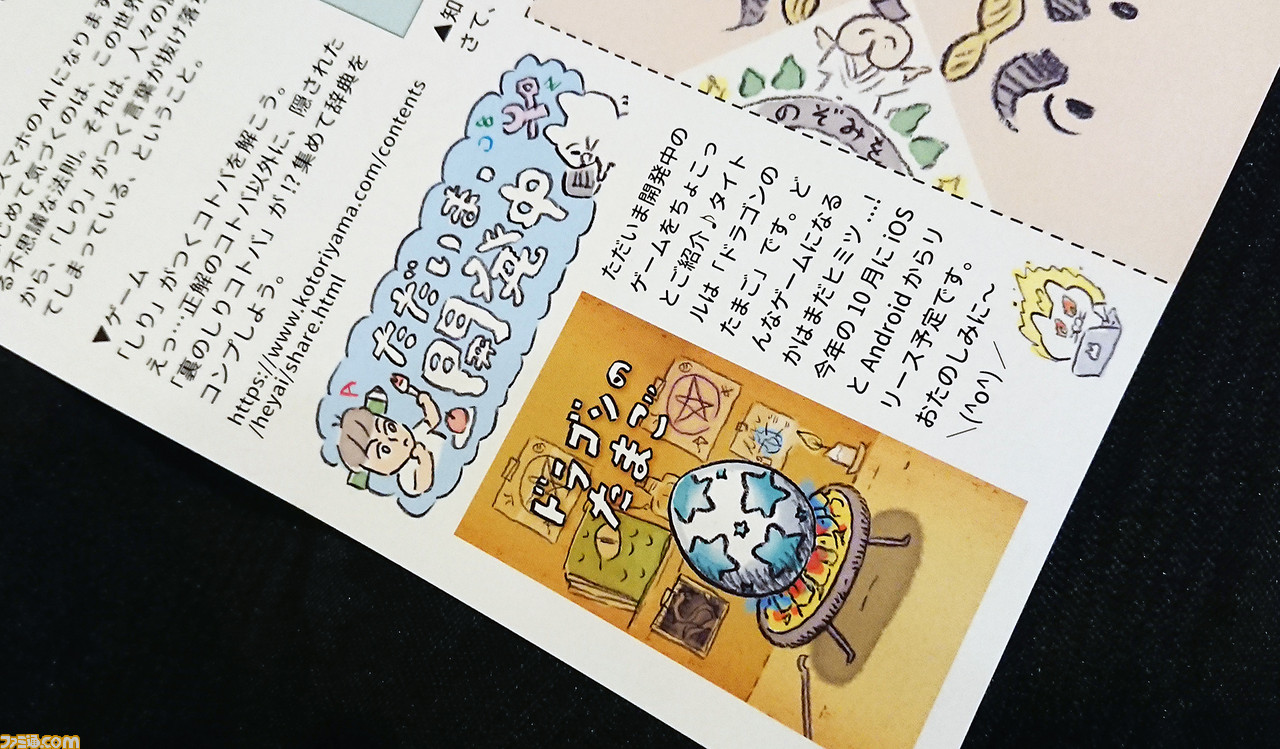 スマホの AI になります
じめて気づくのは、この世界
る不思議な法則。それは、人々の
から、「しり」がつく言葉が抜け落
てしまっている、ということ。
▲ゲーム
「しり」がつくコトバを解こう。
えっ…正解のコトバ以外に、隠された
「裏のしりコトバ」が!? 集めて辞典を
コンプしよう。
https://www.kotoriyama.com/contents
/heyai/share.html
▲知
さて、
ただいま
開発中
A
Z
&
のぞみ
ただいま開発中の
ゲームをちょこっ
とご紹介♪タイト
ルは「ドラゴンの
たまご」です。ど
んなゲームになる
かはまだヒミツ…!
今年の 10 月に iOS
と Android からリ
リース予定です。
おたのしみに〜
＼(^o^)／
ドラゴンの
たまご
ファミ通.com